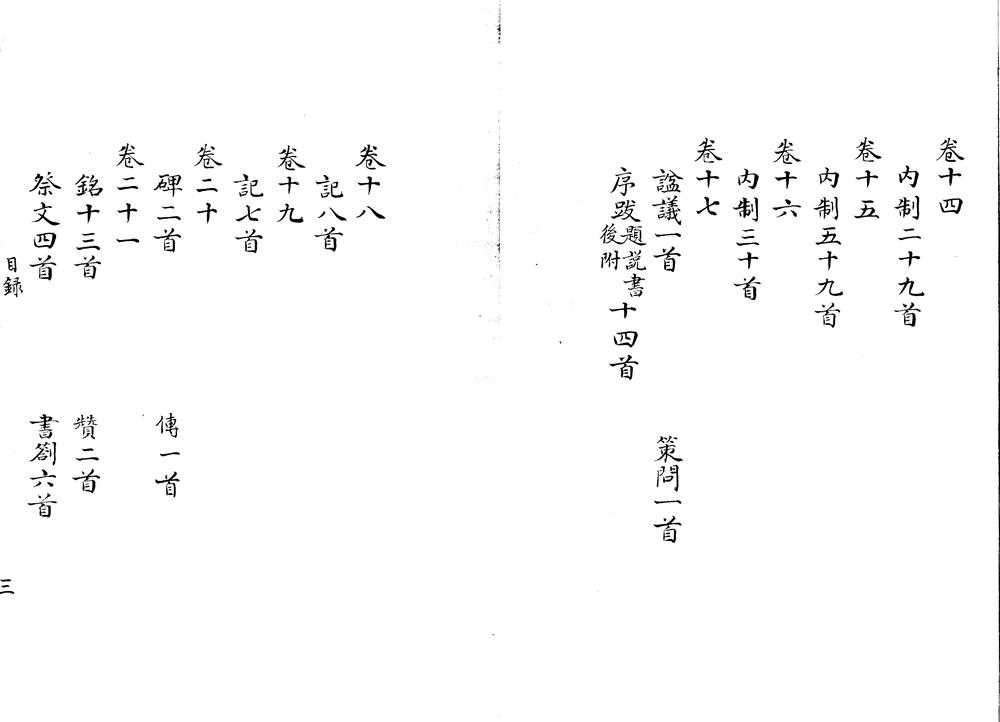 卷十四
内制二十九首
卷十五
内制五十九首
卷十六
内制三十首
卷十七
諡議一首　策問一首
序跋題説書後附十四首
卷十八
記八首
卷十九
記七首
卷二十
碑二首　傳一首
卷二十一
銘十三首　贊二首
祭文四首　書劄六首
目録
三